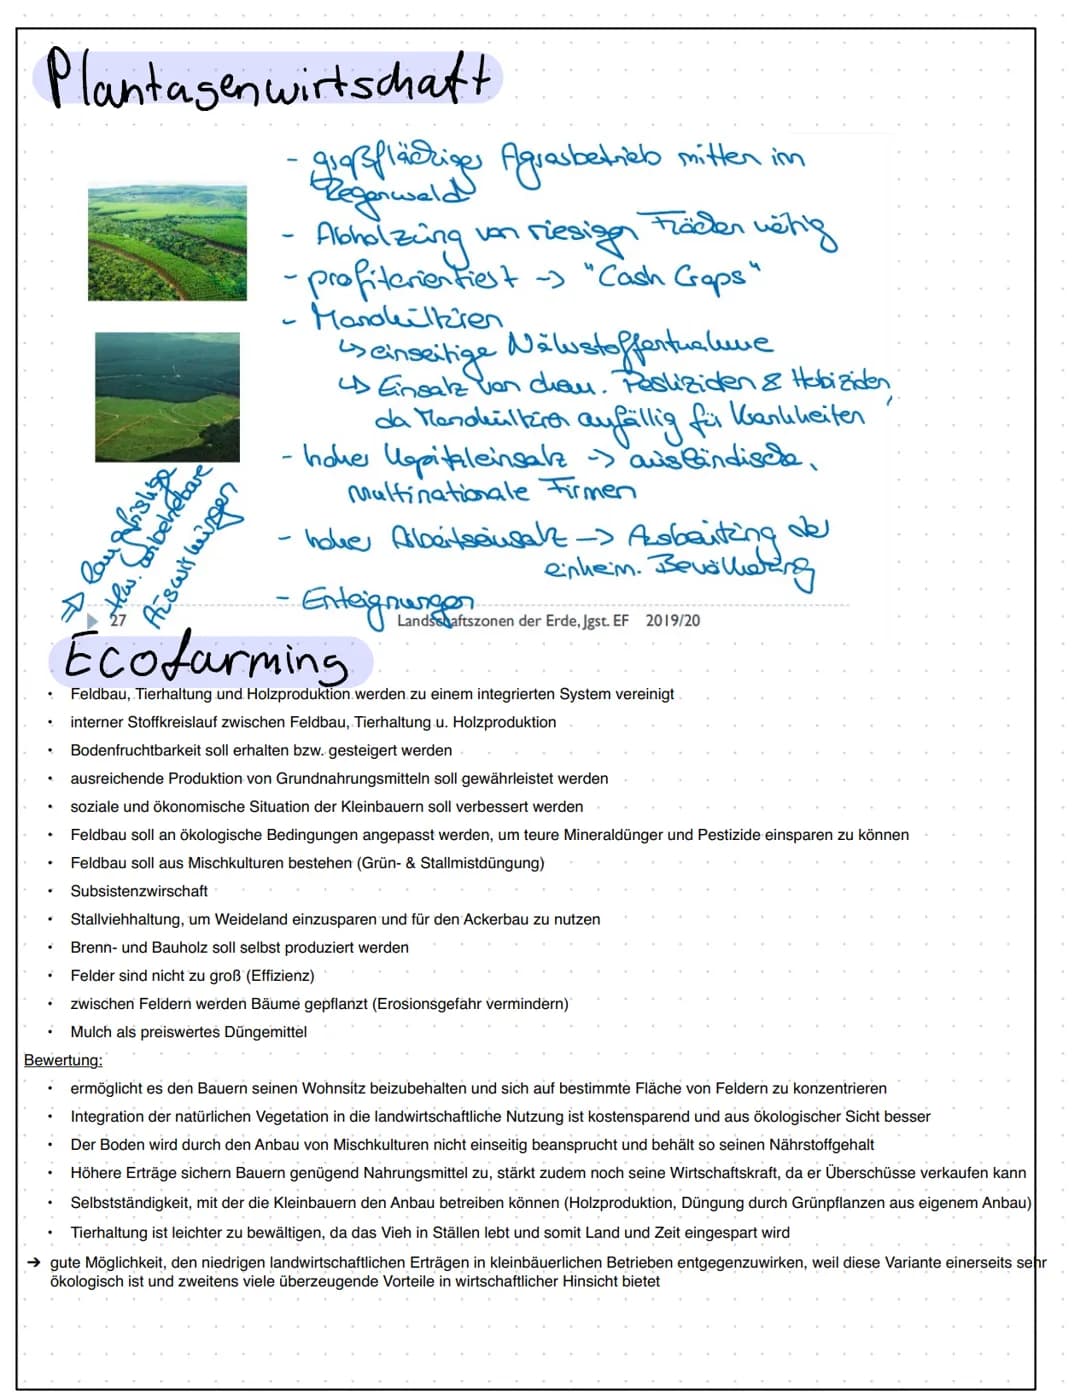 Plantagenwirtschaft
- großflächiges Agrarbetrieb mitten im
Regenwald
- Abholzung von riesigen Flächen nötig
- profitorientiert -> "Cash Crops"
- Monokulturen
↳ einseitige Nährstoffentnahme
↳ Einsatz von chem. Pestiziden & Herbiziden,
da Monokulturen anfällig für Krankheiten
- hoher Kapitaleinsatz -> ausländische,
multinationale Firmen
- hoher Arbeitseinsatz -> Ausbeutung der
einheim. Bevölkerung
- Enteignungen
⇒ langfristige
tlw. unbehebbare
Auswirkungen
27 Landschaftszonen der Erde, Jgst. EF 2019/20
Ecofarming
• Feldbau, Tierhaltung und Holzproduktion werden zu einem integrierten System vereinigt
• interner Stoffkreislauf zwischen Feldbau, Tierhaltung u. Holzproduktion
• Bodenfruchtbarkeit soll erhalten bzw. gesteigert werden
• ausreichende Produktion von Grundnahrungsmitteln soll gewährleistet werden
• soziale und ökonomische Situation der Kleinbauern soll verbessert werden
• Feldbau soll an ökologische Bedingungen angepasst werden, um teure Mineraldünger und Pestizide einsparen zu können
• Feldbau soll aus Mischkulturen bestehen (Grün- & Stallmistdüngung)
• Subsistenzwirschaft
• Stallviehhaltung, um Weideland einzusparen und für den Ackerbau zu nutzen
• Brenn- und Bauholz soll selbst produziert werden
• Felder sind nicht zu groß (Effizienz)
• zwischen Feldern werden Bäume gepflanzt (Erosionsgefahr vermindern)
• Mulch als preiswertes Düngemittel
Bewertung:
• ermöglicht es den Bauern seinen Wohnsitz beizubehalten und sich auf bestimmte Fläche von Feldern zu konzentrieren
• Integration der natürlichen Vegetation in die landwirtschaftliche Nutzung ist kostensparend und aus ökologischer Sicht besser
• Der Boden wird durch den Anbau von Mischkulturen nicht einseitig beansprucht und behält so seinen Nährstoffgehalt
• Höhere Erträge sichern Bauern genügend Nahrungsmittel zu, stärkt zudem noch seine Wirtschaftskraft, da er Überschüsse verkaufen kann
• Selbstständigkeit, mit der die Kleinbauern den Anbau betreiben können (Holzproduktion, Düngung durch Grünpflanzen aus eigenem Anbau)
• Tierhaltung ist leichter zu bewältigen, da das Vieh in Ställen lebt und somit Land und Zeit eingespart wird
➔ gute Möglichkeit, den niedrigen landwirtschaftlichen Erträgen in kleinbäuerlichen Betrieben entgegenzuwirken, weil diese Variante einerseits sehr
ökologisch ist und zweitens viele überzeugende Vorteile in wirtschaftlicher Hinsicht bietet